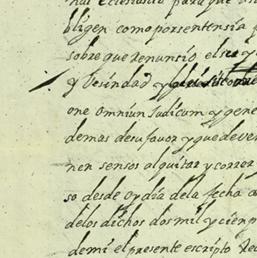 nas eclesiastic para que an
bligen como por sentensia p
sobre que Renunsio el su y
y Vesindad y
one omniun Judicum y gene
demas de su favor y que deven
nen sensos al quitar y corror
so desde oy dia de la fecha a
delos dichos dos mil y cien p
de mi el presente escripto Re